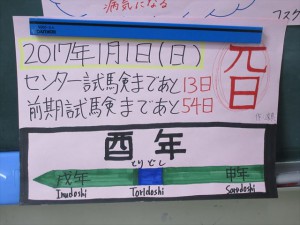 病気になる
フスク
2017年1月1日(日)
元日
センター試験まであと13日
前期試験まであと54日
酉年
とりどし
戌年
申年
Inudoshi
Toridoshi
Sarudoshi